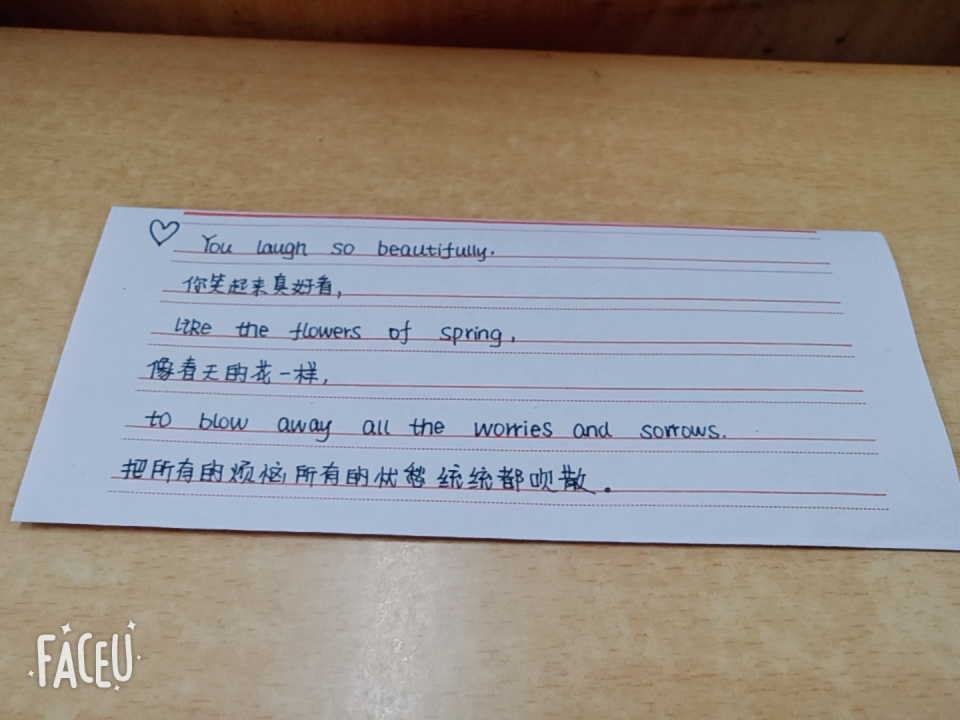 You laugh so beautifully.
你笑起来真好看,
Like the flowers of spring,
像春天的花一样,
to blow away all the worries and sorrows.
把所有的烦恼,所有的忧愁统统都吹散。
FACEU